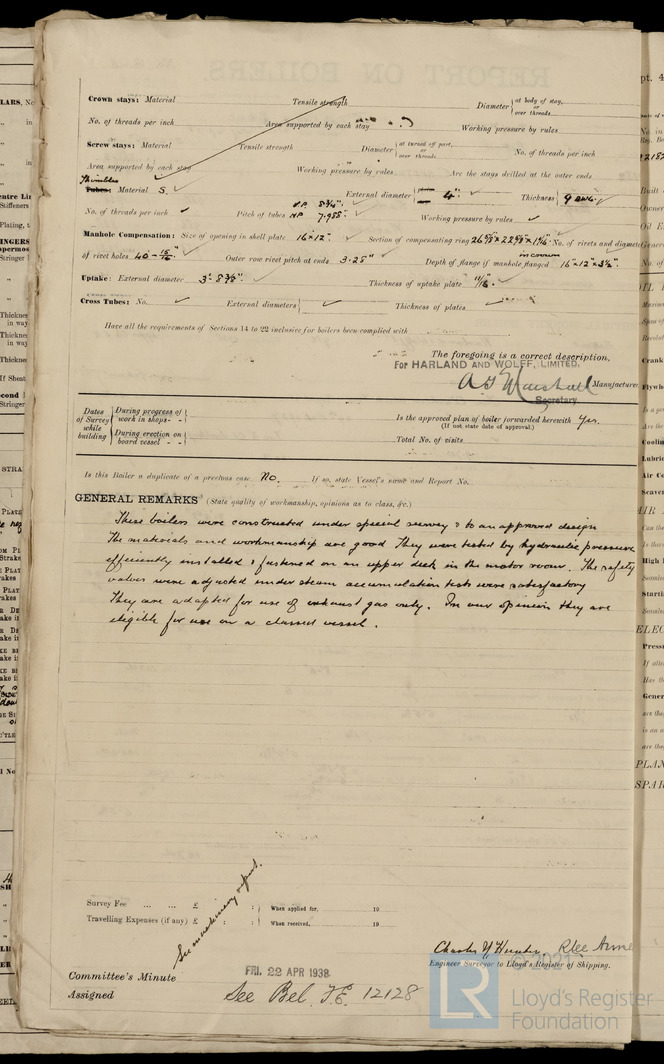 Crown stays: Material Tensile strength Diameter { at body of stay, or over threads
No. of threads per inch Area supported by each stay Working pressure by rules
Screw stays: Material Tensile strength Diameter { at turned off part, or over threads No. of threads per inch
Area supported by each stay Working pressure by rules Are the stays drilled at the outer ends
Thimbles
Tubes: Material S. External diameter { 4" Thickness { 9 BWG.
No. of threads per inch Pitch of tubes V.P. 8¾" H.P. 7.985" Working pressure by rules
Manhole Compensation: Size of opening in shell plate 16"×12" Section of compensating ring No. of rivets and diameter
of rivet holes 40 - 15/16" Outer row rivet pitch at ends 3.25" Depth of flange if manhole flanged 16"×12"×3½".
Uptake: External diameter 3'- 8⅜" Thickness of uptake plate 11/16"
Cross Tubes: No. External diameters { Thickness of plates
Have all the requirements of Sections 14 to 22 inclusive for boilers been complied with
The foregoing is a correct description,
For HARLAND AND WOLFF, LIMITED.
Manufacturer
Secretary
Dates of Survey while building { During progress of work in shops - - { Is the approved plan of boiler forwarded herewith Yes.
(If not state date of approval.)
During erection on board vessel - - { Total No. of visits
Is this Boiler a duplicate of a previous case No. If so, state Vessel's name and Report No.
GENERAL REMARKS (State quality of workmanship, opinions as to class, &c.)
These boilers were constructed under special survey & to an approved design
The materials and workmanship are good They were tested by hydraulic pressure
efficiently installed & fastened on an upper deck in the motor room. The safety
valves were adjusted under steam accumulation tests were satisfactory
They are adapted for use of exhaust gas only. In our opinion they are
eligible for use on a classed vessel.
Survey Fee ... ... £ : : } When applied for, 19
Travelling Expenses (if any) £ : : } When received, 19
See machinery report.
Engineer Surveyor to Lloyd's Register of Shipping.
Committee's Minute FRI. 22 APR 1938
Assigned See Bel. F.E. 12128
© 2021
LR
Lloyd's Register
Foundation